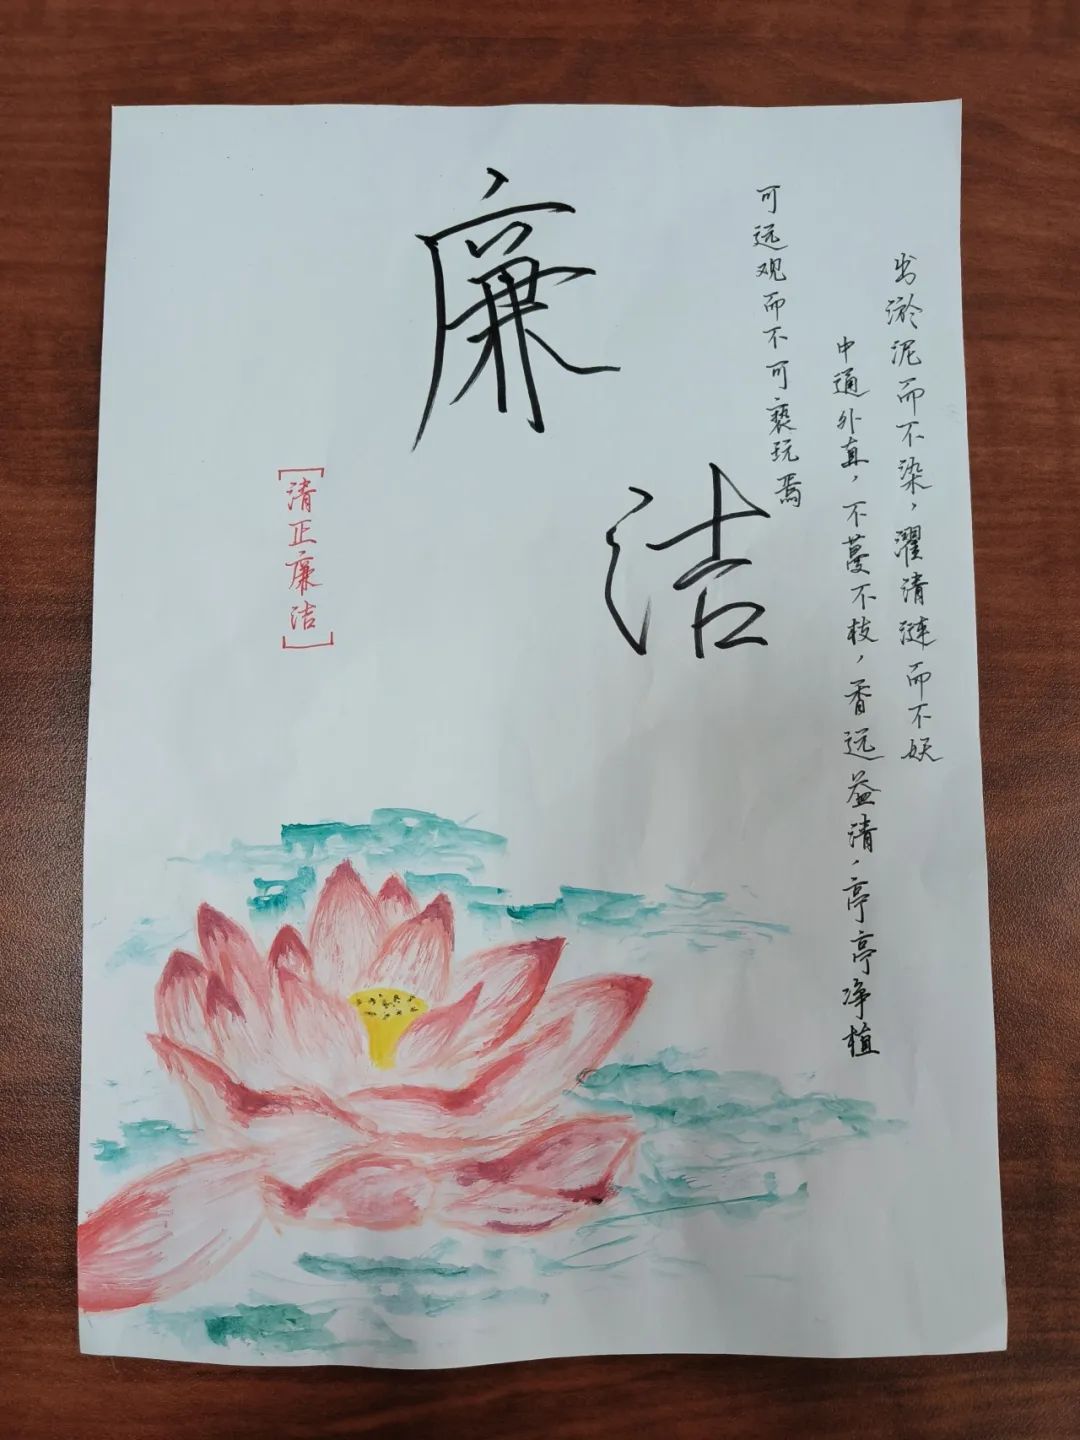 出淤泥而不染，濯清涟而不妖
中通外直，不蔓不枝，香远益清，亭亭净植
可远观而不可亵玩焉
廉
洁
[清正廉洁]